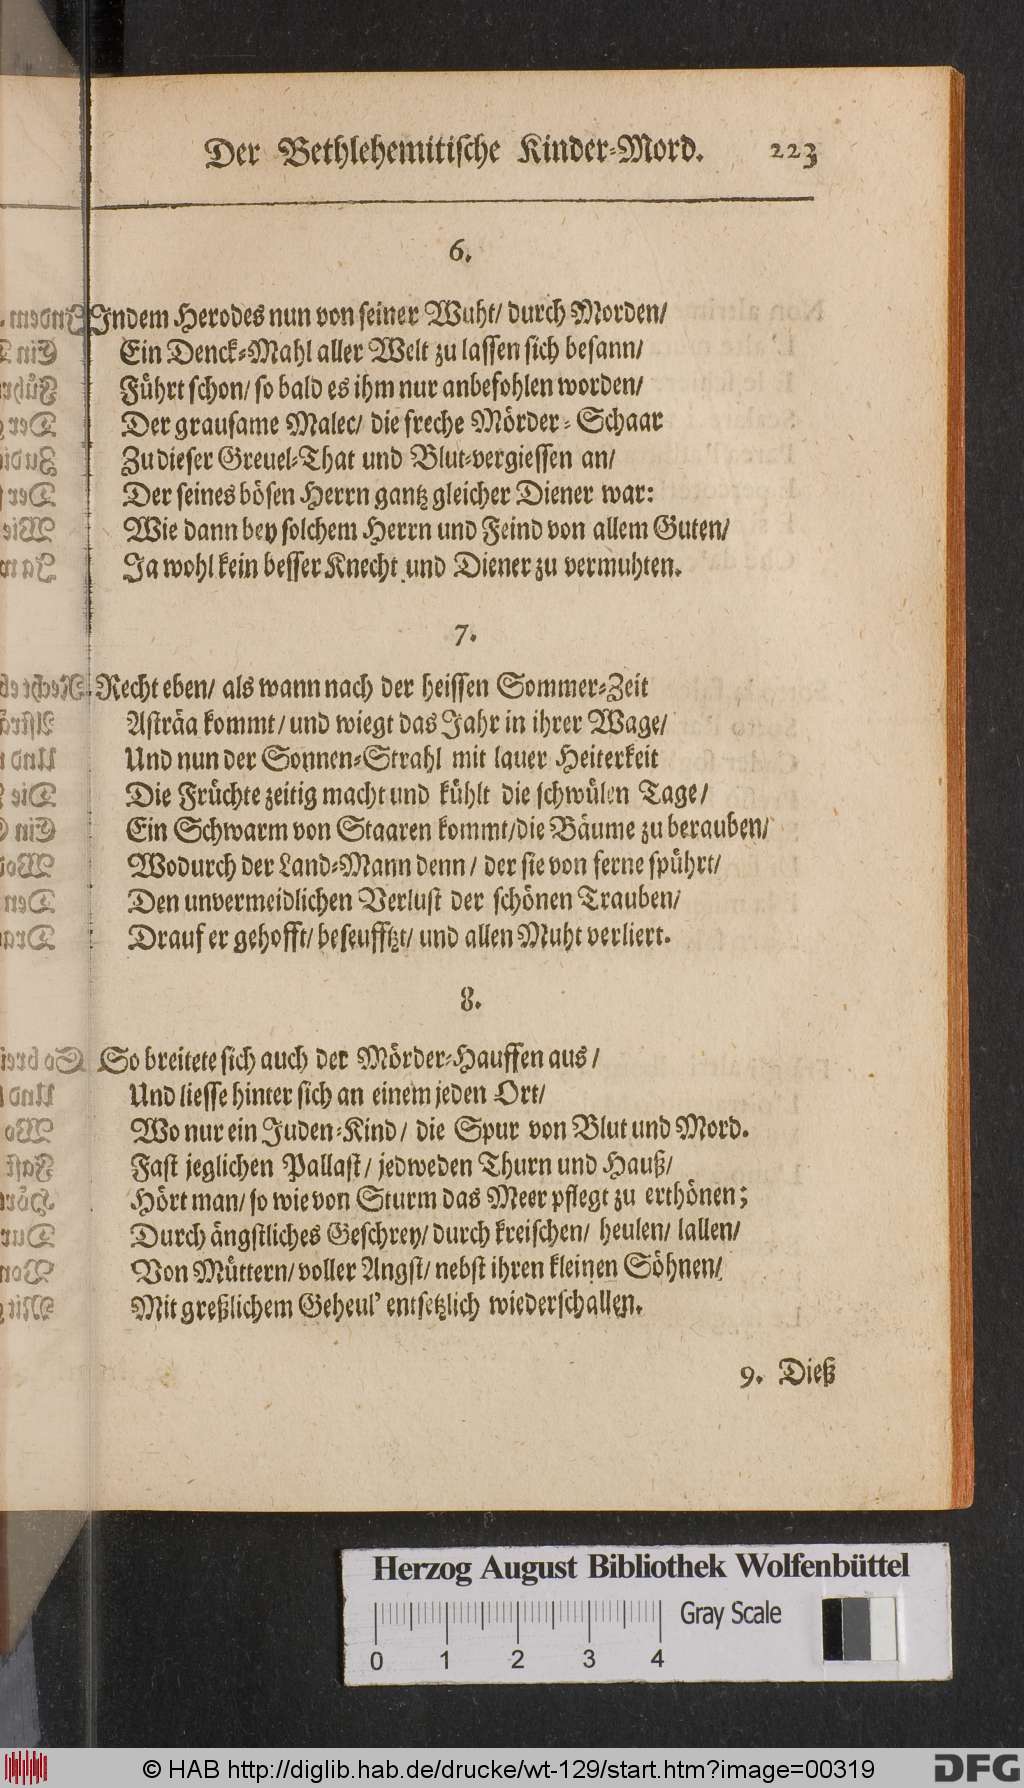 Der Bethlehemitische Kinder-Mord. 223
6.
Indem Herodes nun von seiner Wuht/ durch Morden/
Ein Denck-Mahl aller Welt zu lassen sich besann/
Führt schon/ so bald es ihm nur anbefohlen worden/
Der grausame Malec/ die freche Mörder-Schaar
Zu dieser Greuel-That und Blut-vergiessen an/
Der seines bösen Herrn gantz gleicher Diener war:
Wie dann bey solchem Herrn und Feind von allem Guten/
Ja wohl kein besser Knecht und Diener zu vermuhten.
7.
Recht eben/ als wann nach der heissen Sommer-Zeit
Asträa kommt/ und wiegt das Jahr in ihrer Wage/
Und nun der Sonnen-Strahl mit lauer Heiterkeit
Die Früchte zeitig macht und kühlt die schwülen Tage/
Ein Schwarm von Staaren kommt/ die Bäume zu berauben/
Wodurch der Land-Mann denn/ der sie von ferne spührt/
Den unvermeidlichen Verlust der schönen Trauben/
Drauf er gehofft/ beseufftzt/ und allen Muht verliert.
8.
So breitete sich auch der Mörder-Hauffen aus/
Und liesse hinter sich an einem jeden Ort/
Wo nur ein Juden-Kind/ die Spur von Blut und Mord.
Fast jeglichen Pallast/ jedweden Thurn und Hauß/
Hört man/ so wie von Sturm das Meer pflegt zu erthönen;
Durch ängstliches Geschrey/ durch kreischen/ heulen/ lallen/
Von Müttern/ voller Angst/ nebst ihren kleinen Söhnen/
Mit greßlichem Geheul' entsetzlich wiederschallen.
9. Dieß
Herzog August Bibliothek Wolfenbüttel
Gray Scale
0 1 2 3 4
© HAB http://diglib.hab.de/drucke/wt-129/start.htm?image=00319
DFG